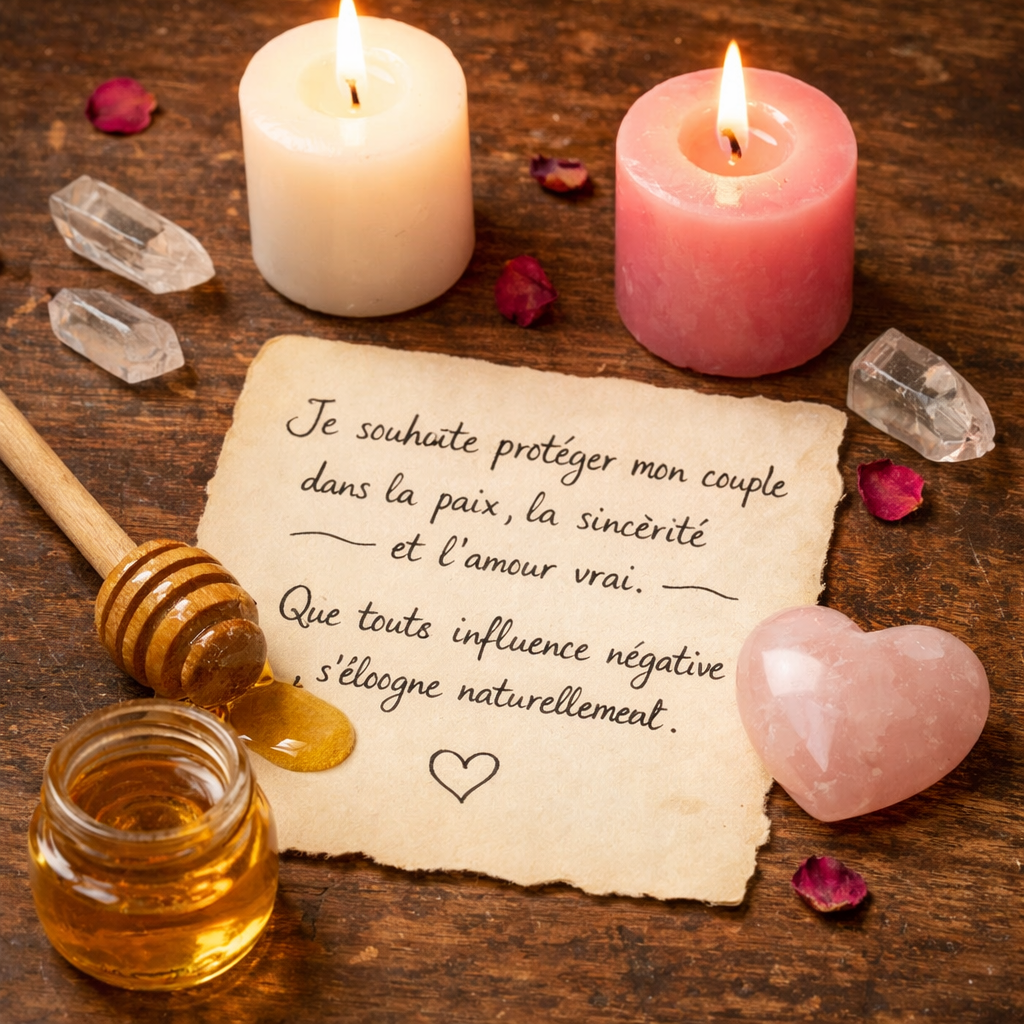 Je souhaite protéger mon couple
dans la paix, la sincèrité
et l'amour vrai.
Que touts influence négative
, s'éloogne naturellemeat.